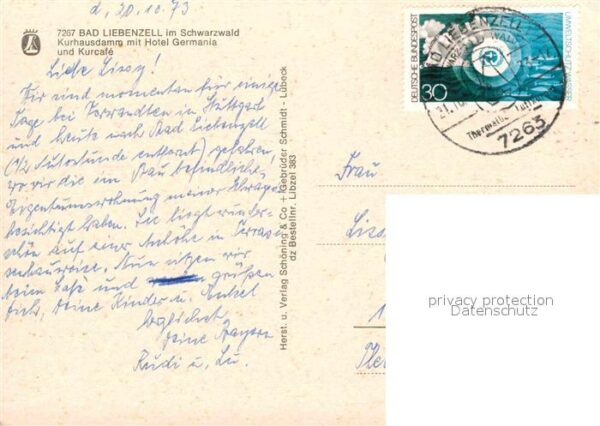 d. 20.10.73
7267 BAD LIEBENZELL im Schwarzwald
Kurhausdamm mit Hotel Germania
und Kurcafé
Liebe Lissy!
Wir sind momentan für einige
Tage bei Verwandten in Stuttgart
und heute nach Bad Liebenzell
(1/2 Autostunde entfernt) gefahren,
wo wir die im Bau befindliche
Eigentumswohnung meiner
besichtigt haben. Sie liegt wunder-
schön auf einer Anhöhe in Terras-
senbauweise. Nun sitzen wir
beim Café und grüßen
Dich, Deine Kinder u. Enkel
herzlichst
Deine
Rudi u. Lu.
Herst. u. Verlag Schöning & Co + Gebrüder Schmidt - Lübeck
dz Bestellnr. Libzel 383
DEUTSCHE BUNDESPOST
30
UMWELTSCHUTZ
BAD LIEBENZELL
7263
Frau
privacy protection
Datenschutz